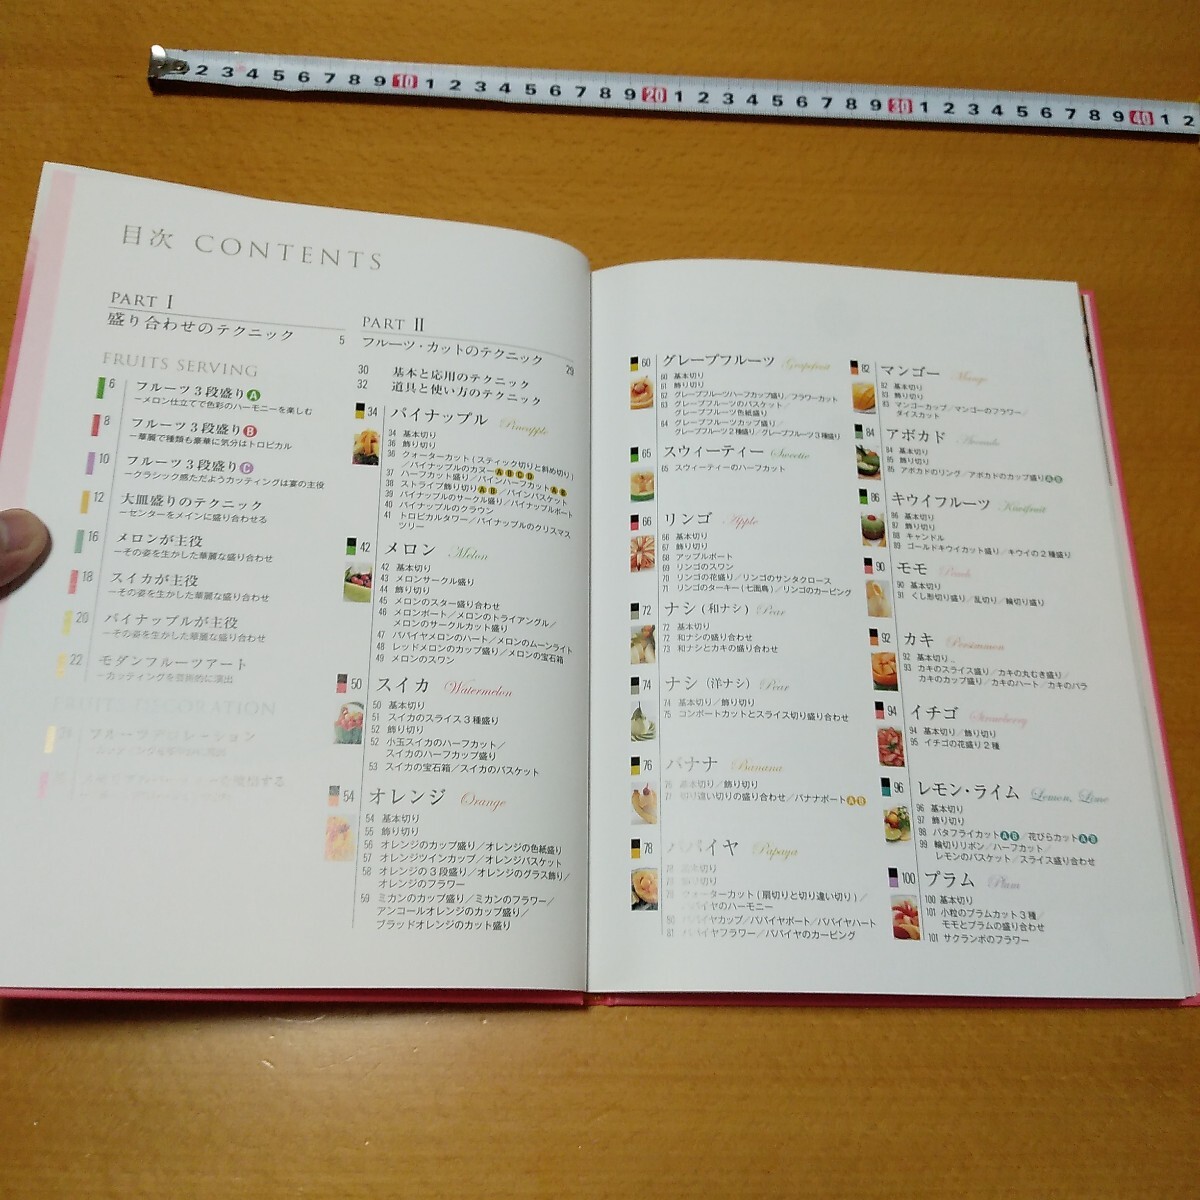 2 3 4 5 6 7 8 9 10 1 2 3 4 5 6 7 8 9 20 1 2 3 4 5 6 7 8 9 30 1 2 3 4 5 6 7 8 9 40 1 2
目次 CONTENTS
PART I
盛り合わせのテクニック 5
FRUITS SERVING
6 フルーツ3段盛りA
－メロン仕立てで色彩のハーモニーを楽しむ
8 フルーツ3段盛りB
－華麗で種類も豪華に気分はトロピカル
10 フルーツ3段盛りC
－クラシック感ただようカッティングは宴の主役
12 大皿盛りのテクニック
－センターをメインに盛り合わせる
16 メロンが主役
－その姿を生かした華麗な盛り合わせ
18 スイカが主役
－その姿を生かした華麗な盛り合わせ
20 パイナップルが主役
－その姿を生かした華麗な盛り合わせ
22 モダンフルーツアート
－カッティングを芸術的に演出
FRUITS DECORATION
フルーツデコレーション
PART II
フルーツ・カットのテクニック 29
30 基本と応用のテクニック
32 道具と使い方のテクニック
34 パイナップル Pineapple
34 基本切り
36 飾り切り
36 クォーターカット(スティック切りと斜め切り)
／パイナップルのカヌーABCD
37 ハーフカット盛り／パインハーフカットAB
38 ストライプ飾り切りAB／パインバスケット
39 パイナップルのサークル盛り／パイナップルボート
40 パイナップルのクラウン
41 トロピカルタワー／パイナップルのクリスマス
ツリー
42 メロン Melon
42 基本切り
43 メロンサークル盛り
44 飾り切り
45 メロンのスター盛り合わせ
46 メロンボート／メロンのトライアングル／
メロンのサークルカット盛り
47 パパイヤメロンのハート／メロンのムーンライト
48 レッドメロンのカップ盛り／メロンの宝石箱
49 メロンのスワン
50 スイカ Watermelon
50 基本切り
51 スイカのスライス3種盛り
52 飾り切り
52 小玉スイカのハーフカット／
スイカのハーフカップ盛り
53 スイカの宝石箱／スイカのバスケット
54 オレンジ Orange
54 基本切り
55 飾り切り
56 オレンジのカップ盛り／オレンジの色紙盛り
57 オレンジツインカップ／オレンジバスケット
58 オレンジの3段盛り／オレンジのグラス飾り／
オレンジのフラワー
59 ミカンのカップ盛り／ミカンのフラワー／
アンコールオレンジのカップ盛り／
ブラッドオレンジのカット盛り
60 グレープフルーツ Grapefruit
60 基本切り
61 飾り切り
62 グレープフルーツハーフカップ盛り／フラワーカット
63 グレープフルーツのバスケット／
グレープフルーツ色紙盛り
64 グレープフルーツカップ盛り／
グレープフルーツ2種盛り／グレープフルーツ3種盛り
65 スウィーティー Sweetie
65 スウィーティーのハーフカット
66 リンゴ Apple
66 基本切り
67 飾り切り
68 アップルボート
69 リンゴのスワン
70 リンゴの花盛り／リンゴのサンタクロース
71 リンゴのターキー(七面鳥)／リンゴのカービング
72 ナシ(和ナシ) Pear
72 基本切り
72 和ナシの盛り合わせ
73 和ナシとカキの盛り合わせ
74 ナシ(洋ナシ) Pear
74 基本切り／飾り切り
75 コンポートカットとスライス切り盛り合わせ
76 バナナ Banana
76 基本切り／飾り切り
77 切り違い切りの盛り合わせ／バナナボートAB
78 パパイヤ Papaya
78 基本切り
飾り切り
クォーターカット(扇切りと切り違い切り)／
パパイヤのハーモニー
80 パパイヤカップ／パパイヤボート／パパイヤハート
81 パパイヤフラワー／パパイヤのカービング
82 マンゴー Mango
82 基本切り
83 飾り切り
83 マンゴーカップ／マンゴーのフラワー／
ダイスカット
84 アボカド Avocado
84 基本切り
85 飾り切り
85 アボカドのリング／アボカドのカップ盛りAB
86 キウイフルーツ Kiwifruit
86 基本切り
87 飾り切り
88 キャンドル
89 ゴールドキウイカット盛り／キウイの2種盛り
90 モモ Peach
90 基本切り
91 くし形切り盛り／乱切り／輪切り盛り
92 カキ Persimmon
92 基本切り
93 カキのスライス盛り／カキの丸むき盛り／
カキのカップ盛り／カキのハート／カキのバラ
94 イチゴ Strawberry
94 基本切り／飾り切り
95 イチゴの花盛り2種
96 レモン・ライム Lemon, Lime
96 基本切り
97 飾り切り
98 バタフライカットAB／花びらカットAB
99 輪切りリボン／ハーフカット／
レモンのバスケット／スライス盛り合わせ
100 プラム Plum
100 基本切り
101 小粒のプラムカット3種／
モモとプラムの盛り合わせ
101 サクランボのフラワー